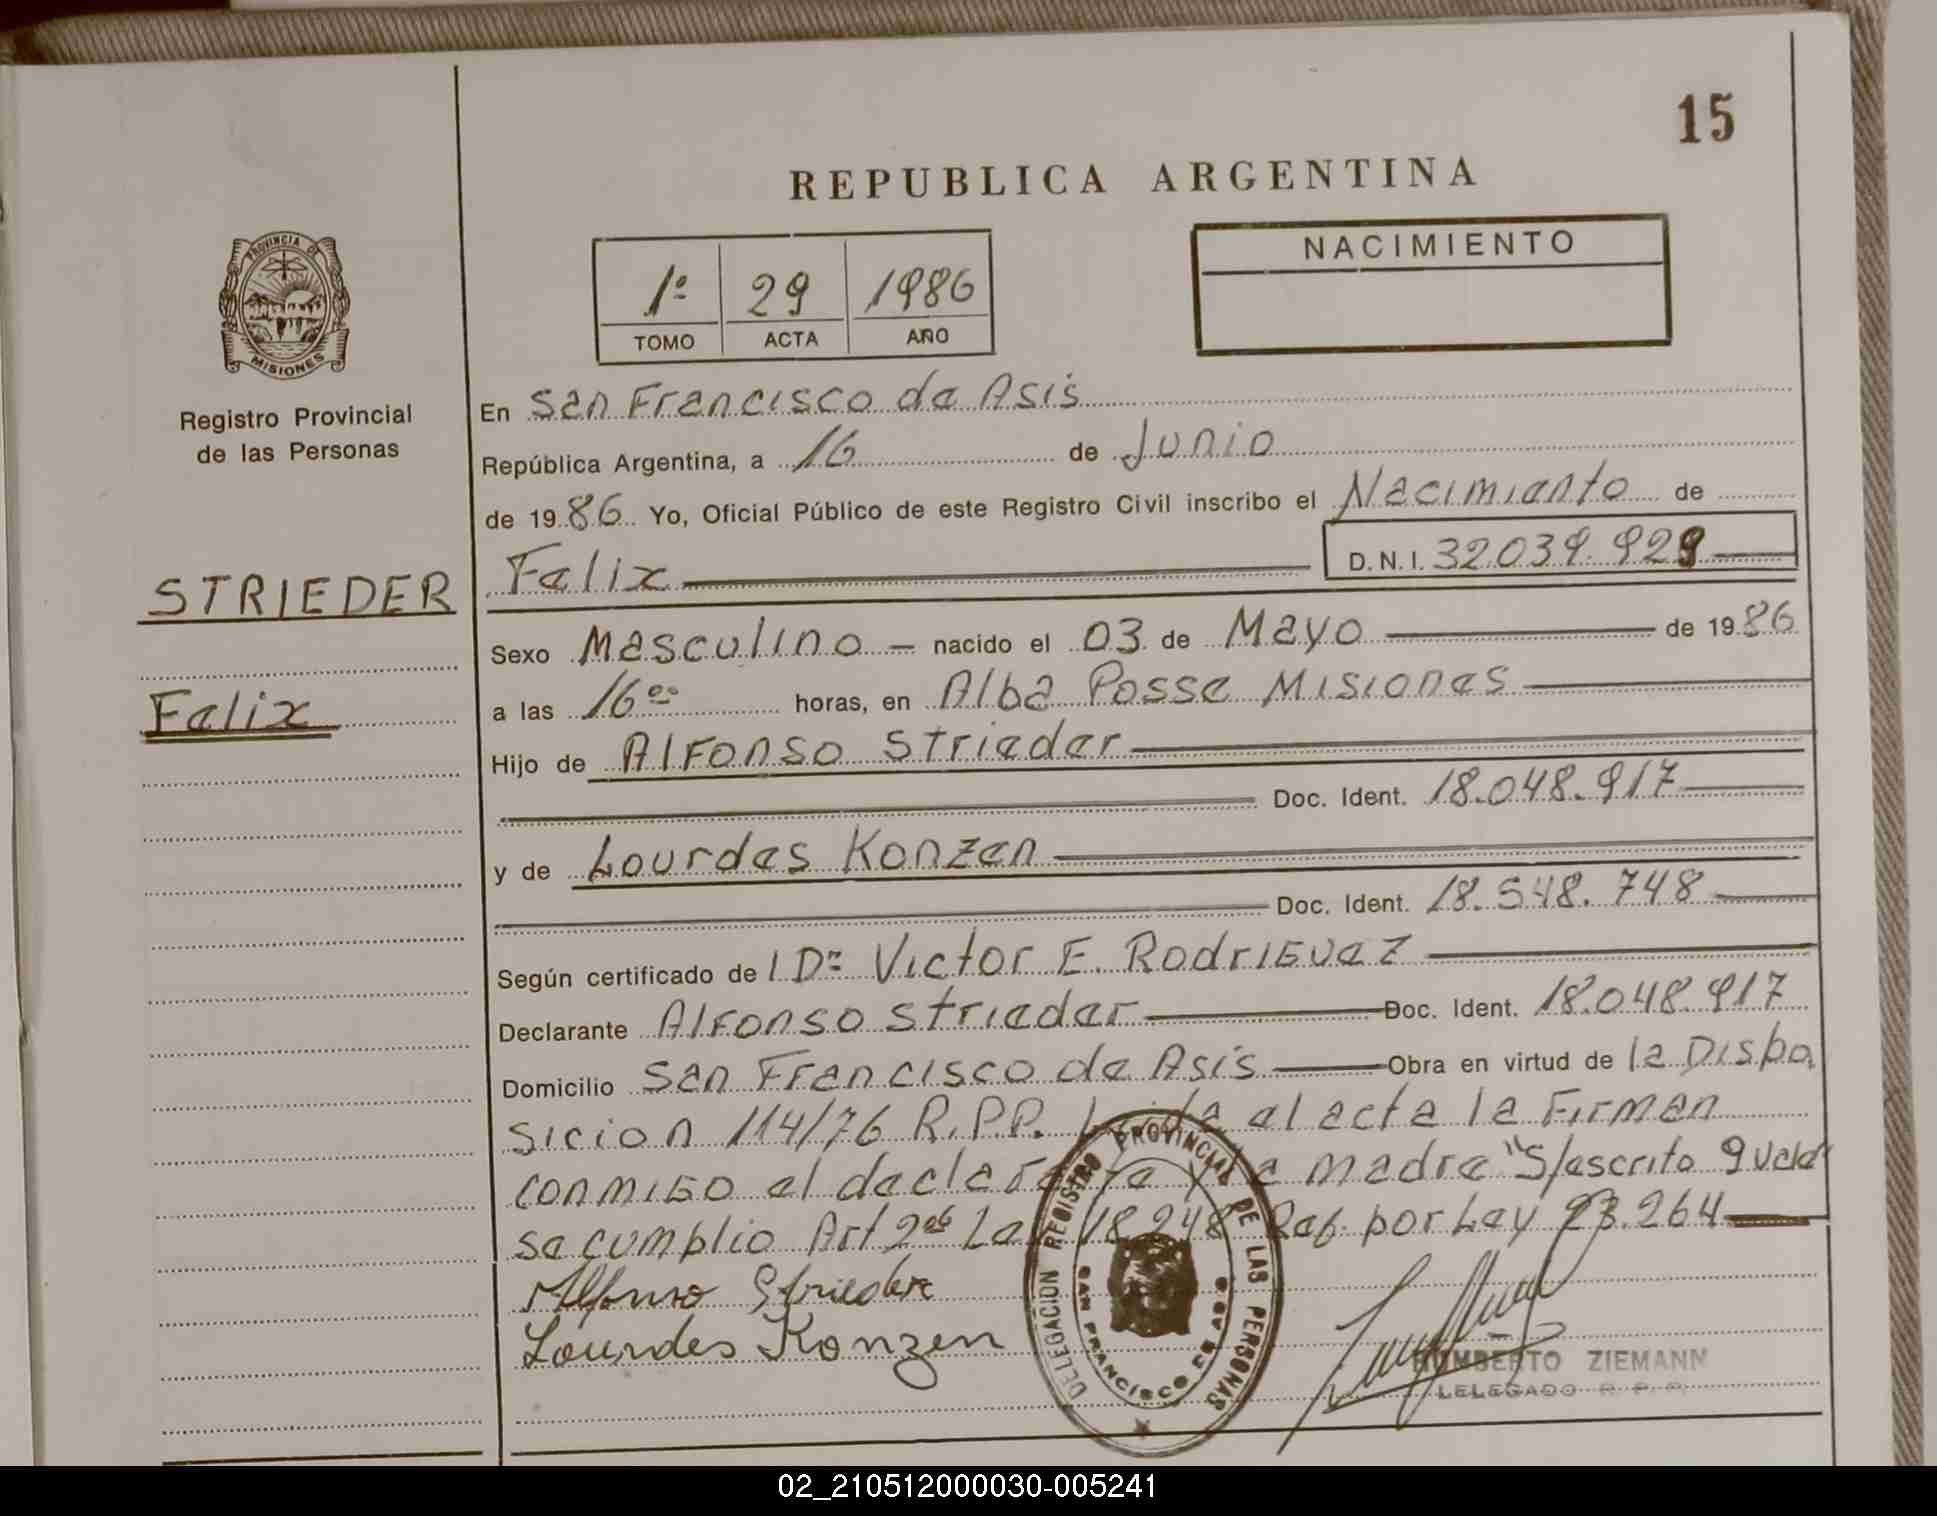 15
REPUBLICA ARGENTINA
PROVINCIA DE
MISIONES
Registro Provincial
de las Personas
1º 29 1986
TOMO ACTA AÑO
NACIMIENTO
STRIEDER
Felix
En San Francisco de Asis
República Argentina, a 16 de Junio
de 1986 Yo, Oficial Público de este Registro Civil inscribo el Nacimiento de
Felix D.N.I. 32.039.929
Sexo Masculino nacido el 03 de Mayo de 1986
a las 16⁰⁰ horas, en Alba Posse Misiones
Hijo de Alfonso Strieder
Doc. Ident. 18.048.917
y de Lourdes Konzen
Doc. Ident. 18.548.748
Según certificado de l Dr Victor E. Rodriguez
Declarante Alfonso Strieder Doc. Ident. 18.048.917
Domicilio San Francisco de Asis Obra en virtud de la Dispo
sicion 114/76 R.P.P. Leida el acta la Firman
conmigo el declarante y la madre "S/escrito 9 vale"
se cumplio Art 2º Ley 18.248 Ref. por Ley 23.264
Alfonso Strieder
Lourdes Konzen
DELEGACION REGISTRO PROVINCIAL DE LAS PERSONAS
SAN FRANCISCO DE ASIS
HUMBERTO ZIEMANN
DELEGADO R. P. P.
02_210512000030-005241